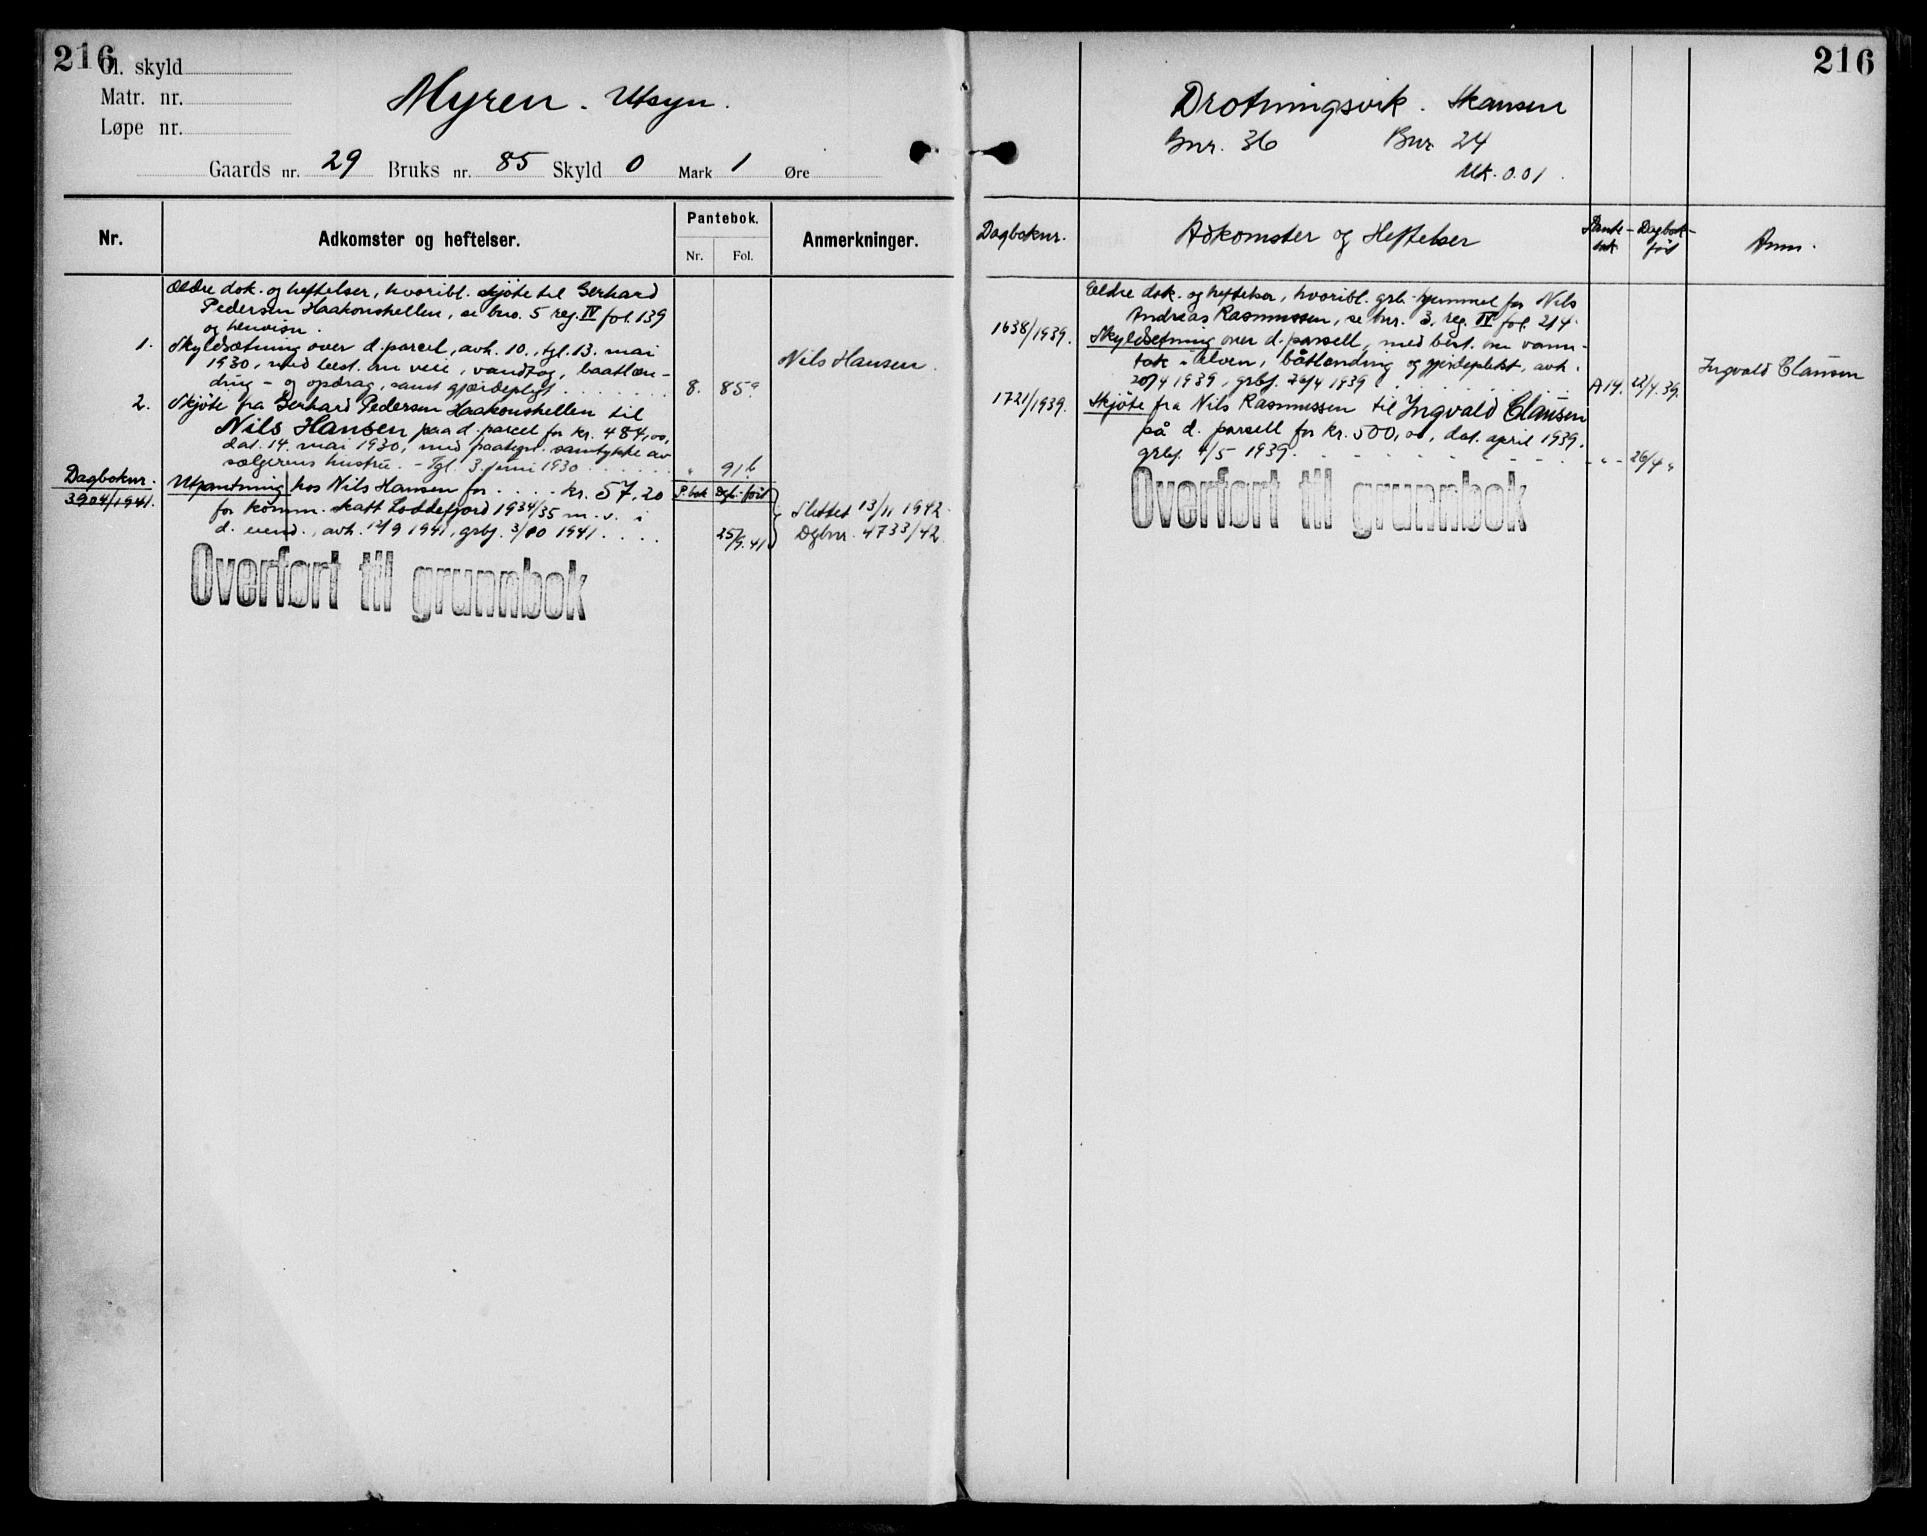 216
Gl. skyld
Matr. nr.
Løpe nr.
Myren. Utsyn.
Gaards nr. 29 Bruks nr. 85 Skyld 0 Mark 1 Øre
Nr.
Adkomster og heftelser.
Pantebok.
Nr. Fol.
Anmerkninger.
Ældre dok. og heftelser, hvoribl. skjøte til Gerhard
Pedersen Haakonshellen, se bno. 5 reg. IV fol. 139
og henvisn.
1. Skyldsætning over d. parcel, avh. 10., tgl. 13. mai
1930, med best. om veie, vandtag, baatlæn-
ding- og opdrag, samt gjærdepligt . . . . . . 8. 85a
Nils Hansen.
2. Skjøte fra Gerhard Pedersen Haakonshellen til
Nils Hansen paa d. parcel for kr. 484,00,
dat. 14. mai 1930, med paategn. samtykke av
sælgerens hustru. - Tgl. 3. juni 1930 . . . . . . " 91b
Dagboknr.
3904/1941. Utpantning hos Nils Hansen for . . . . kr. 57,20 P.bok Dgb.-ført
for komm. skatt Loddefjord 1934/35 m. v. i
d. eiend., avh. 12/9 1941, grbf. 3/10 1941 . . . . 25/9.41
Slettet 13/11 1942
Dgbnr. 4733/42
Overført til grunnbok
216
Drotningsvik. Skansen
Gnr. 36 Bnr 24
Mk. 0.01.
Dagboknr.
Adkomster og Heftelser
Pante-
bok
Dagbok-
ført
Anm.
Eldre dok. og heftelser, hvoribl. grb. hjemmel for Nils
Andreas Rasmussen, se bnr. 3, reg. IV fol. 214.
1638/1939. Skyldsetning over d. parsell, med best. om vann-
tak i elven, båtlending og gjerdeplikt, avh.
20/4 1939, grbf. 26/4 1939 . . . . . . A14. 22/4.39.
Ingvald Clausen
1721/1939. Skjøte fra Nils Rasmussen til Ingvald Clausen
på d. parsell for kr. 500,00, dat. april 1939,
grbf. 1/5 1939. . . . . . . . . -"- 26/4 "
Overført til grunnbok